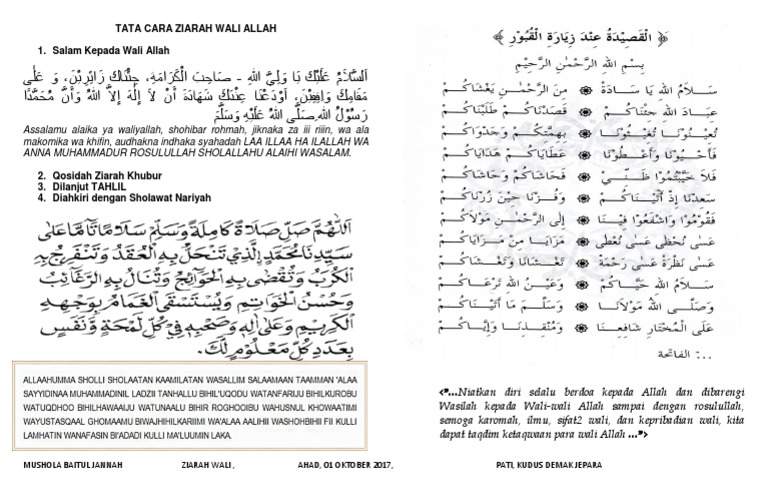 TATA CARA ZIARAH WALI ALLAH
1. Salam Kepada Wali Allah
اَلسَّلَامُ عَلَيْكَ يَا وَلِيَّ اللهِ - صَاحِبَ الْكَرَامَةِ، جِئْنَاكَ زَائِرِيْنَ، وَ عَلَى
مَقَامِكَ وَاقِفِيْنَ، أَوْدَعْنَا عِنْدَكَ شَهَادَةَ أَنْ لاَ إِلٰهَ إِلاَّ اللهُ وَأَنَّ مُحَمَّدًا
رَسُوْلُ اللهِ صَلَّى اللهُ عَلَيْهِ وَسَلَّمَ
Assalamu alaika ya waliyallah, shohibar rohmah, jiknaka za iii riiin, wa ala
makomika wa khifin, audhakna indhaka syahadah LAA ILLAA HA ILALLAH WA
ANNA MUHAMMADUR ROSULULLAH SHOLALLAHU ALAIHI WASALAM.
2. Qosidah Ziarah Khubur
3. Dilanjut TAHLIL
4. Diahkiri dengan Sholawat Nariyah
اَللّٰهُمَّ صَلِّ صَلَاةً كَامِلَةً وَسَلِّمْ سَلَامًا تَامًّا عَلَى
سَيِّدِنَا مُحَمَّدٍ الَّذِيْ تَنْحَلُّ بِهِ الْعُقَدُ وَتَنْفَرِجُ بِهِ
الْكُرَبُ وَتُقْضَى بِهِ الْحَوَائِجُ وَتُنَالُ بِهِ الرَّغَائِبُ
وَحُسْنُ الْخَوَاتِمِ وَيُسْتَسْقَى الْغَمَامُ بِوَجْهِهِ
الْكَرِيْمِ وَعَلَى اٰلِهِ وَصَحْبِهِ فِيْ كُلِّ لَمْحَةٍ وَنَفَسٍ
بِعَدَدِ كُلِّ مَعْلُوْمٍ لَكَ.
ALLAAHUMMA SHOLLI SHOLAATAN KAAMILATAN WASALLIM SALAAMAAN TAAMMAN 'ALAA
SAYYIDINAA MUHAMMADINIL LADZII TANHALLU BIHIL'UQODU WATANFARIJU BIHILKUROBU
WATUQDHOO BIHILHAWAAIJU WATUNAALU BIHIR ROGHOOIBU WAHUSNUL KHOWAATIMI
WAYUSTASQAAL GHOMAAMU BIWAJHIHILKARIIMI WA'ALAA AALIHII WASHOHBIHII FII KULLI
LAMHATIN WANAFASIN BI'ADADI KULLI MA'LUUMIN LAKA.
﴿ الْقَصِيْدَةُ عِنْدَ زِيَارَةِ الْقُبُوْرِ ﴾
بِسْمِ اللهِ الرَّحْمٰنِ الرَّحِيْمِ
سَلَامُ اللهِ يَا سَادَةْ ۞ مِنَ الرَّحْمٰنِ يَغْشَاكُمْ
عِبَادَ اللهِ جِئْنَاكُمْ ۞ قَصَدْنَاكُمْ طَلَبْنَاكُمْ
تُعِيْنُوْنَا تُغِيْثُوْنَا ۞ بِهِمَّتِكُمْ وَجَدْوَاكُمْ
فَأَحْبُوْنَا وَأَعْطُوْنَا ۞ عَطَايَاكُمْ هَدَايَاكُمْ
فَلَا خَيَّبْتُمُوْا ظَنِّيْ ۞ فَحَاشَاكُمْ وَحَاشَاكُمْ
سَعِدْنَا إِذْ أَتَيْنَاكُمْ ۞ وَفُزْنَا حِيْنَ زُرْنَاكُمْ
فَقُوْمُوْا وَاشْفَعُوْا فِيْنَا ۞ إِلَى الرَّحْمٰنِ مَوْلَاكُمْ
عَسَى نُحْظَى عَسَى نُعْطَى ۞ مَزَايَا مِنْ مَزَايَاكُمْ
عَسَى نَظْرَةْ عَسَى رَحْمَةْ ۞ تَغْشَانَا وَتَغْشَاكُمْ
سَلَامُ اللهِ حَيَّاكُمْ ۞ وَعَيْنُ اللهِ تَرْعَاكُمْ
وَصَلَّى اللهُ مَوْلَانَا ۞ وَسَلَّمَ مَا أَتَيْنَاكُمْ
عَلَى الْمُخْتَارِ شَافِعِنَا ۞ وَمُنْقِذِنَا وَإِيَّاكُمْ
... الفاتحة
<"...Niatkan diri selalu berdoa kepada Allah dan dibarengi
Wasilah kepada Wali-wali Allah sampai dengan rosulullah,
semoga karomah, ilmu, sifat2 wali, dan kepribadian wali, kita
dapat taqdim ketaqwaan para wali Allah ...">
MUSHOLA BAITUL JANNAH ZIARAH WALI, AHAD, 01 OKTOBER 2017, PATI, KUDUS DEMAK JEPARA